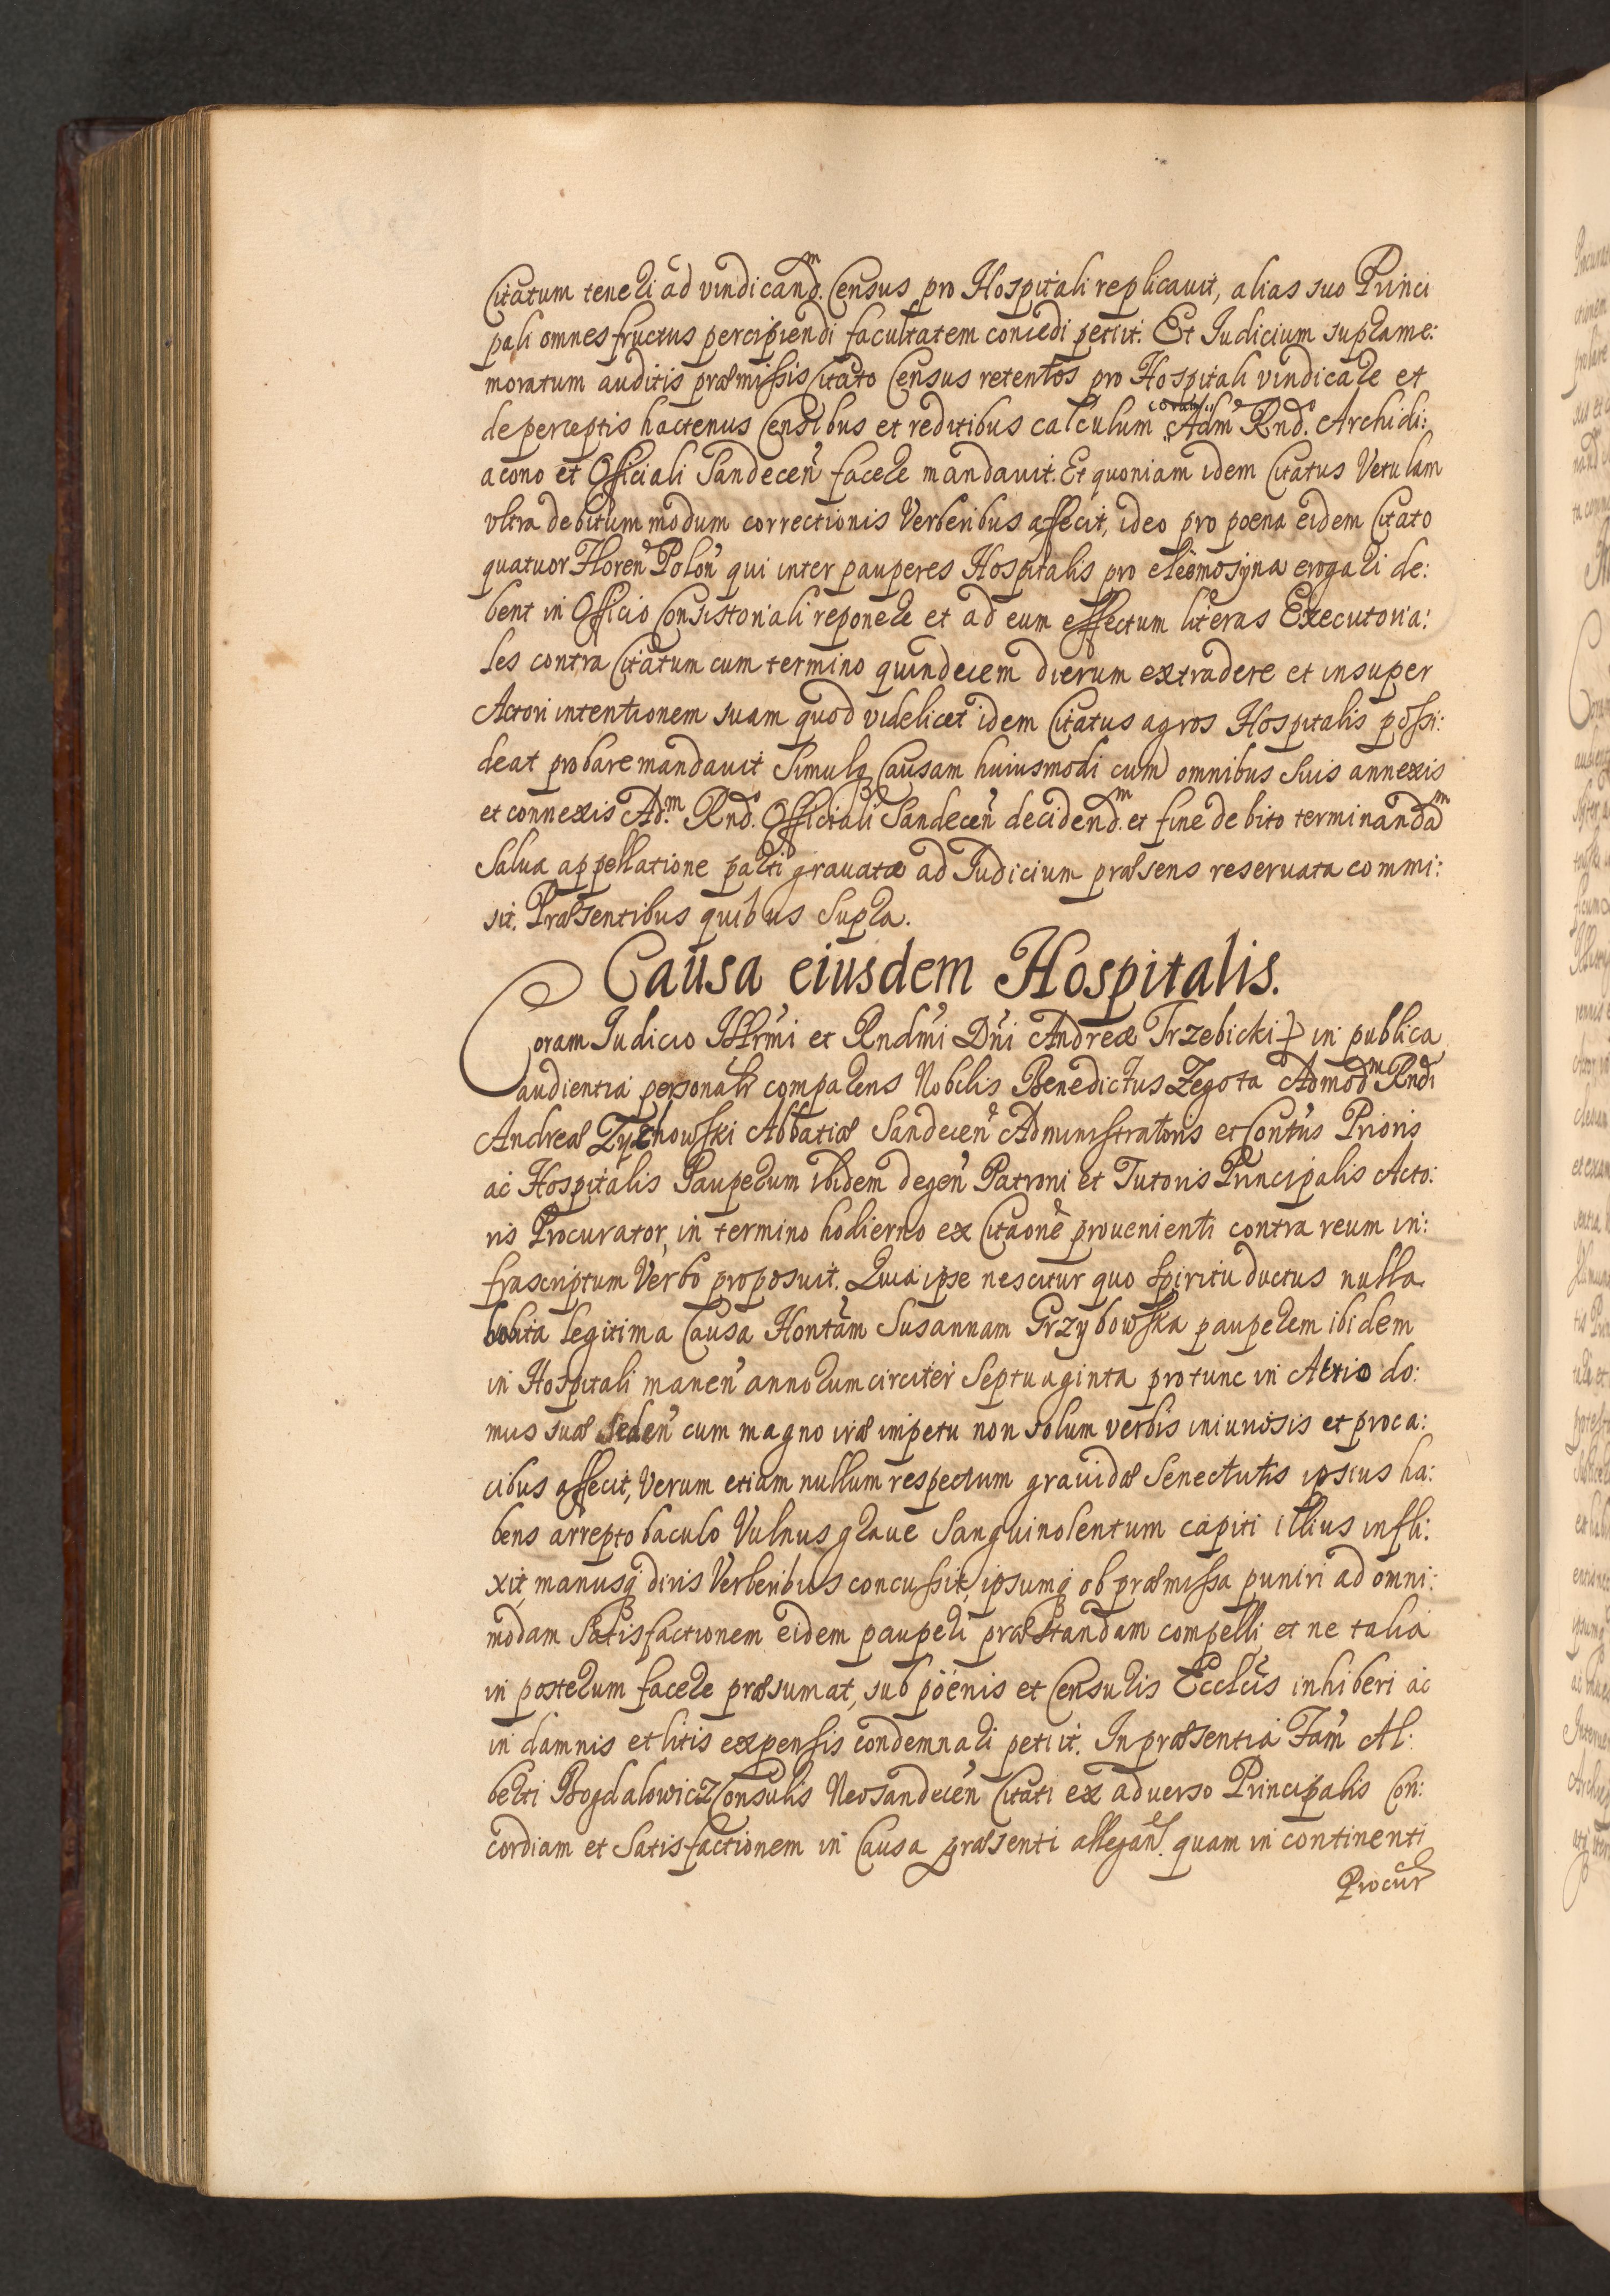 Citatum teneri ad vindicand.m Census pro Hospitali replicauit, alias suo Princi
pali omnes fructus percipiendi facultatem concedi petiit. Et Iudicium suprame:
moratum auditis præmissis Citato Census retentos pro Hospitali vindicare et
de perceptis hactenus Censibus et reditibus calculum coram Adm Rndo. Archidi:
acono et Officiali Sandecen̄ facere mandauit. Et quoniam idem Citatus Vetulam
vltra debitum modum correctionis Verberibus affecit, ideo pro poena eidem Citato
quatuor Floren̄ Polon̄ qui inter pauperes Hospitalis pro eleemosyna erogari de:
bent in Officio Consistoriali reponere et ad eum effectum literas Executoria:
les contra Citatum cum termino quindecem dierum extradere et insuper
Actori intentionem suam quod videlicet idem Citatus agros Hospitalis possi:
deat probare mandauit Simulq Causam huiusmodi cum omnibus suis annexis
et connexis Ad.m Rndo. Officiali Sandecen̄ decidend.m et fine debito terminandam
Salua appellatione parti grauatæ ad Iudicium præsens reseruata commi:
sit. Præsentibus quibus Supra.
Causa eiusdem Hospitalis.
Coram Iudicio Illr̄mi et Rndm̄i Dn̄i Andreæ Trzebicki in publica
audientia personalr comparens Nobilis Benedictus Zegota Admodm Rndi
Andreæ Zychowski Abbatiæ Sandecen̄ Administratoris et Contūs Prioris
ac Hospitalis Pauperum ibidem degen̄ Patroni et Tutoris Principalis Acto:
ris Procurator, in termino hodierno ex Citaōne prouenienti contra reum in:
frascriptum Verbo proposuit. Quia ipse nescitur quo spiritu ductus nulla
legitima Causa Hontām Susannam Grzybowska pauperem ibidem
in Hospitali manen̄ annorum circiter Septuaginta protunc in Atrio do:
mus suæ seden̄ cum magno iræ impetu non solum verbis iniuriosis et proca:
cibus affecit, Verum etiam nullum respectum grauidæ Senectutis ipsius ha:
bens arrepto baculo Vulnus graue Sanguinolentum capiti illius infli:
xit, manusq diris Verberibus concussit, ipsumq ob præmissa puniri ad omni:
modam Satisfactionem eidem pauperi præstandam compelli et ne talia
in posterum facere præsumat, sub poenis et Censuris Ecclcīs inhiberi ac
in damnis et litis expensis condemnari petiit. In præsentia Fam̄ Al:
berti Bogdalowicz Consulis Neosandecen̄ Citati ex aduerso Principalis Con:
cordiam et Satisfactionem in Causa præsenti allegan̄. quam in continenti
Procur